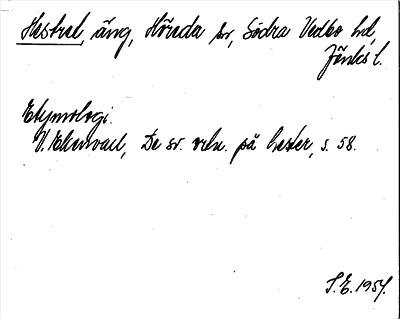 Hestral, äng, Höreda sn, Södra Vedbo hd,
Jönk. l.
Etymologi.
V. Ekenvall, De sv. ortn. på hester, s. 58.
S.E. 1957.